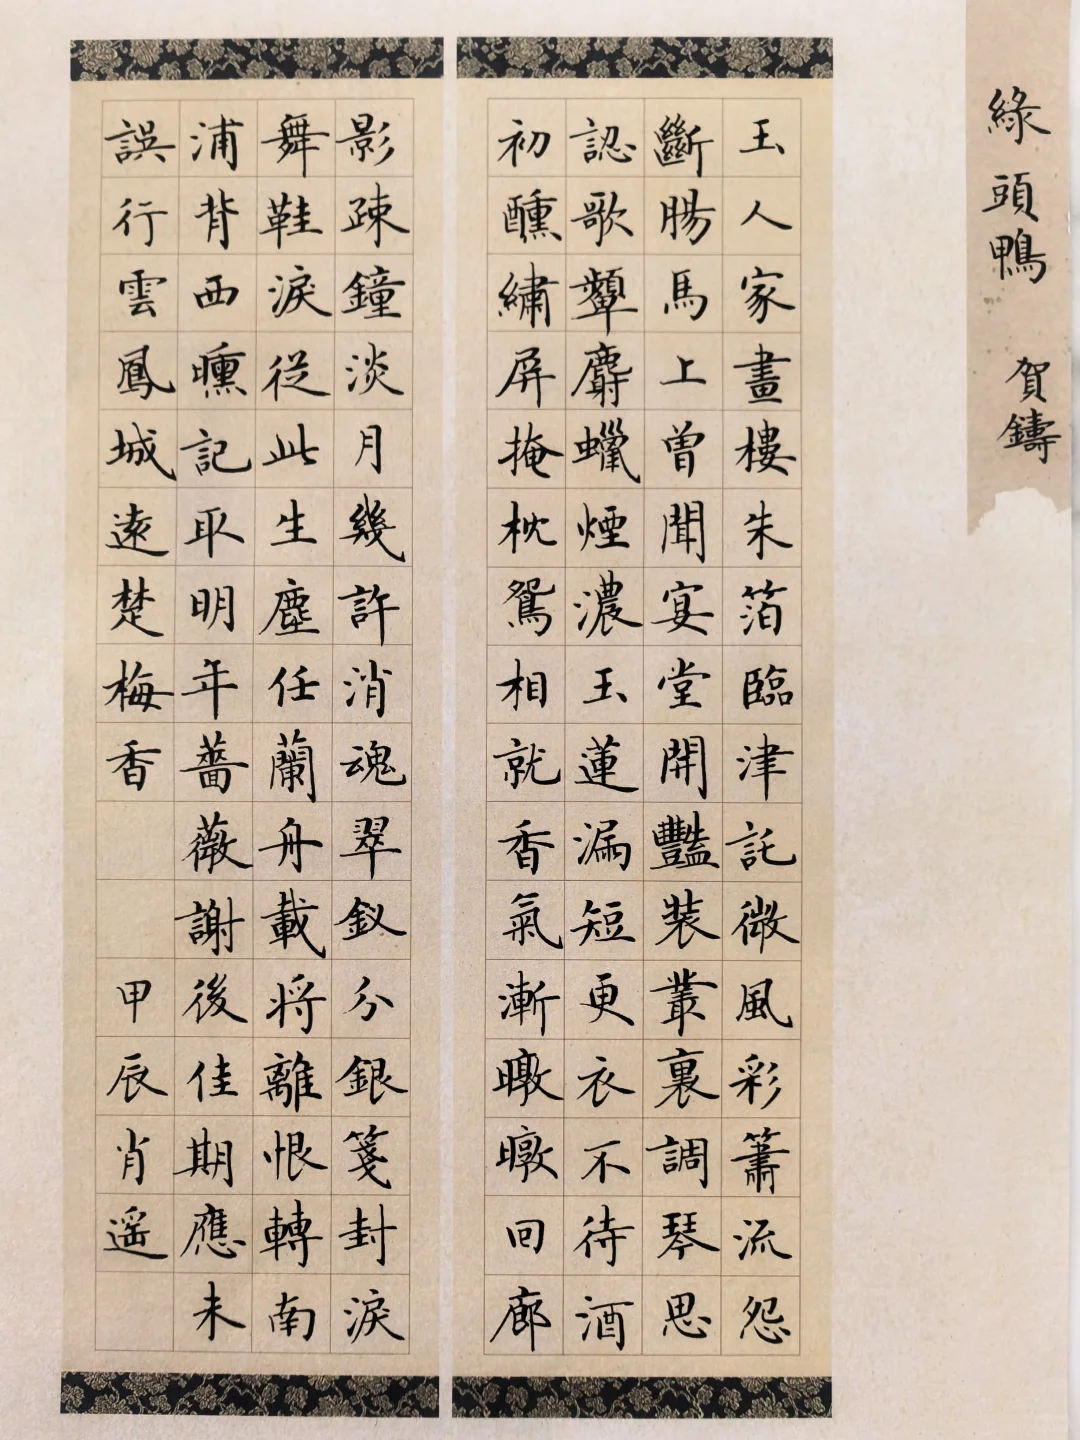 綠頭鴨 賀鑄
玉人家畫樓朱箔臨津託微風彩簫流怨
斷腸馬上曾聞宴堂開豔裝叢裏調琴思
認歌顰麝蠟煙濃玉蓮漏短更衣不待酒
初醺繡屏掩枕鴛相就香氣漸暾暾回廊
影疎鐘淡月幾許消魂翠釵分銀箋封淚
舞鞋淚從此生塵任蘭舟載將離恨轉南
浦背西曛記取明年薔薇謝後佳期應未
誤行雲鳳城遠楚梅香 甲辰肖遥